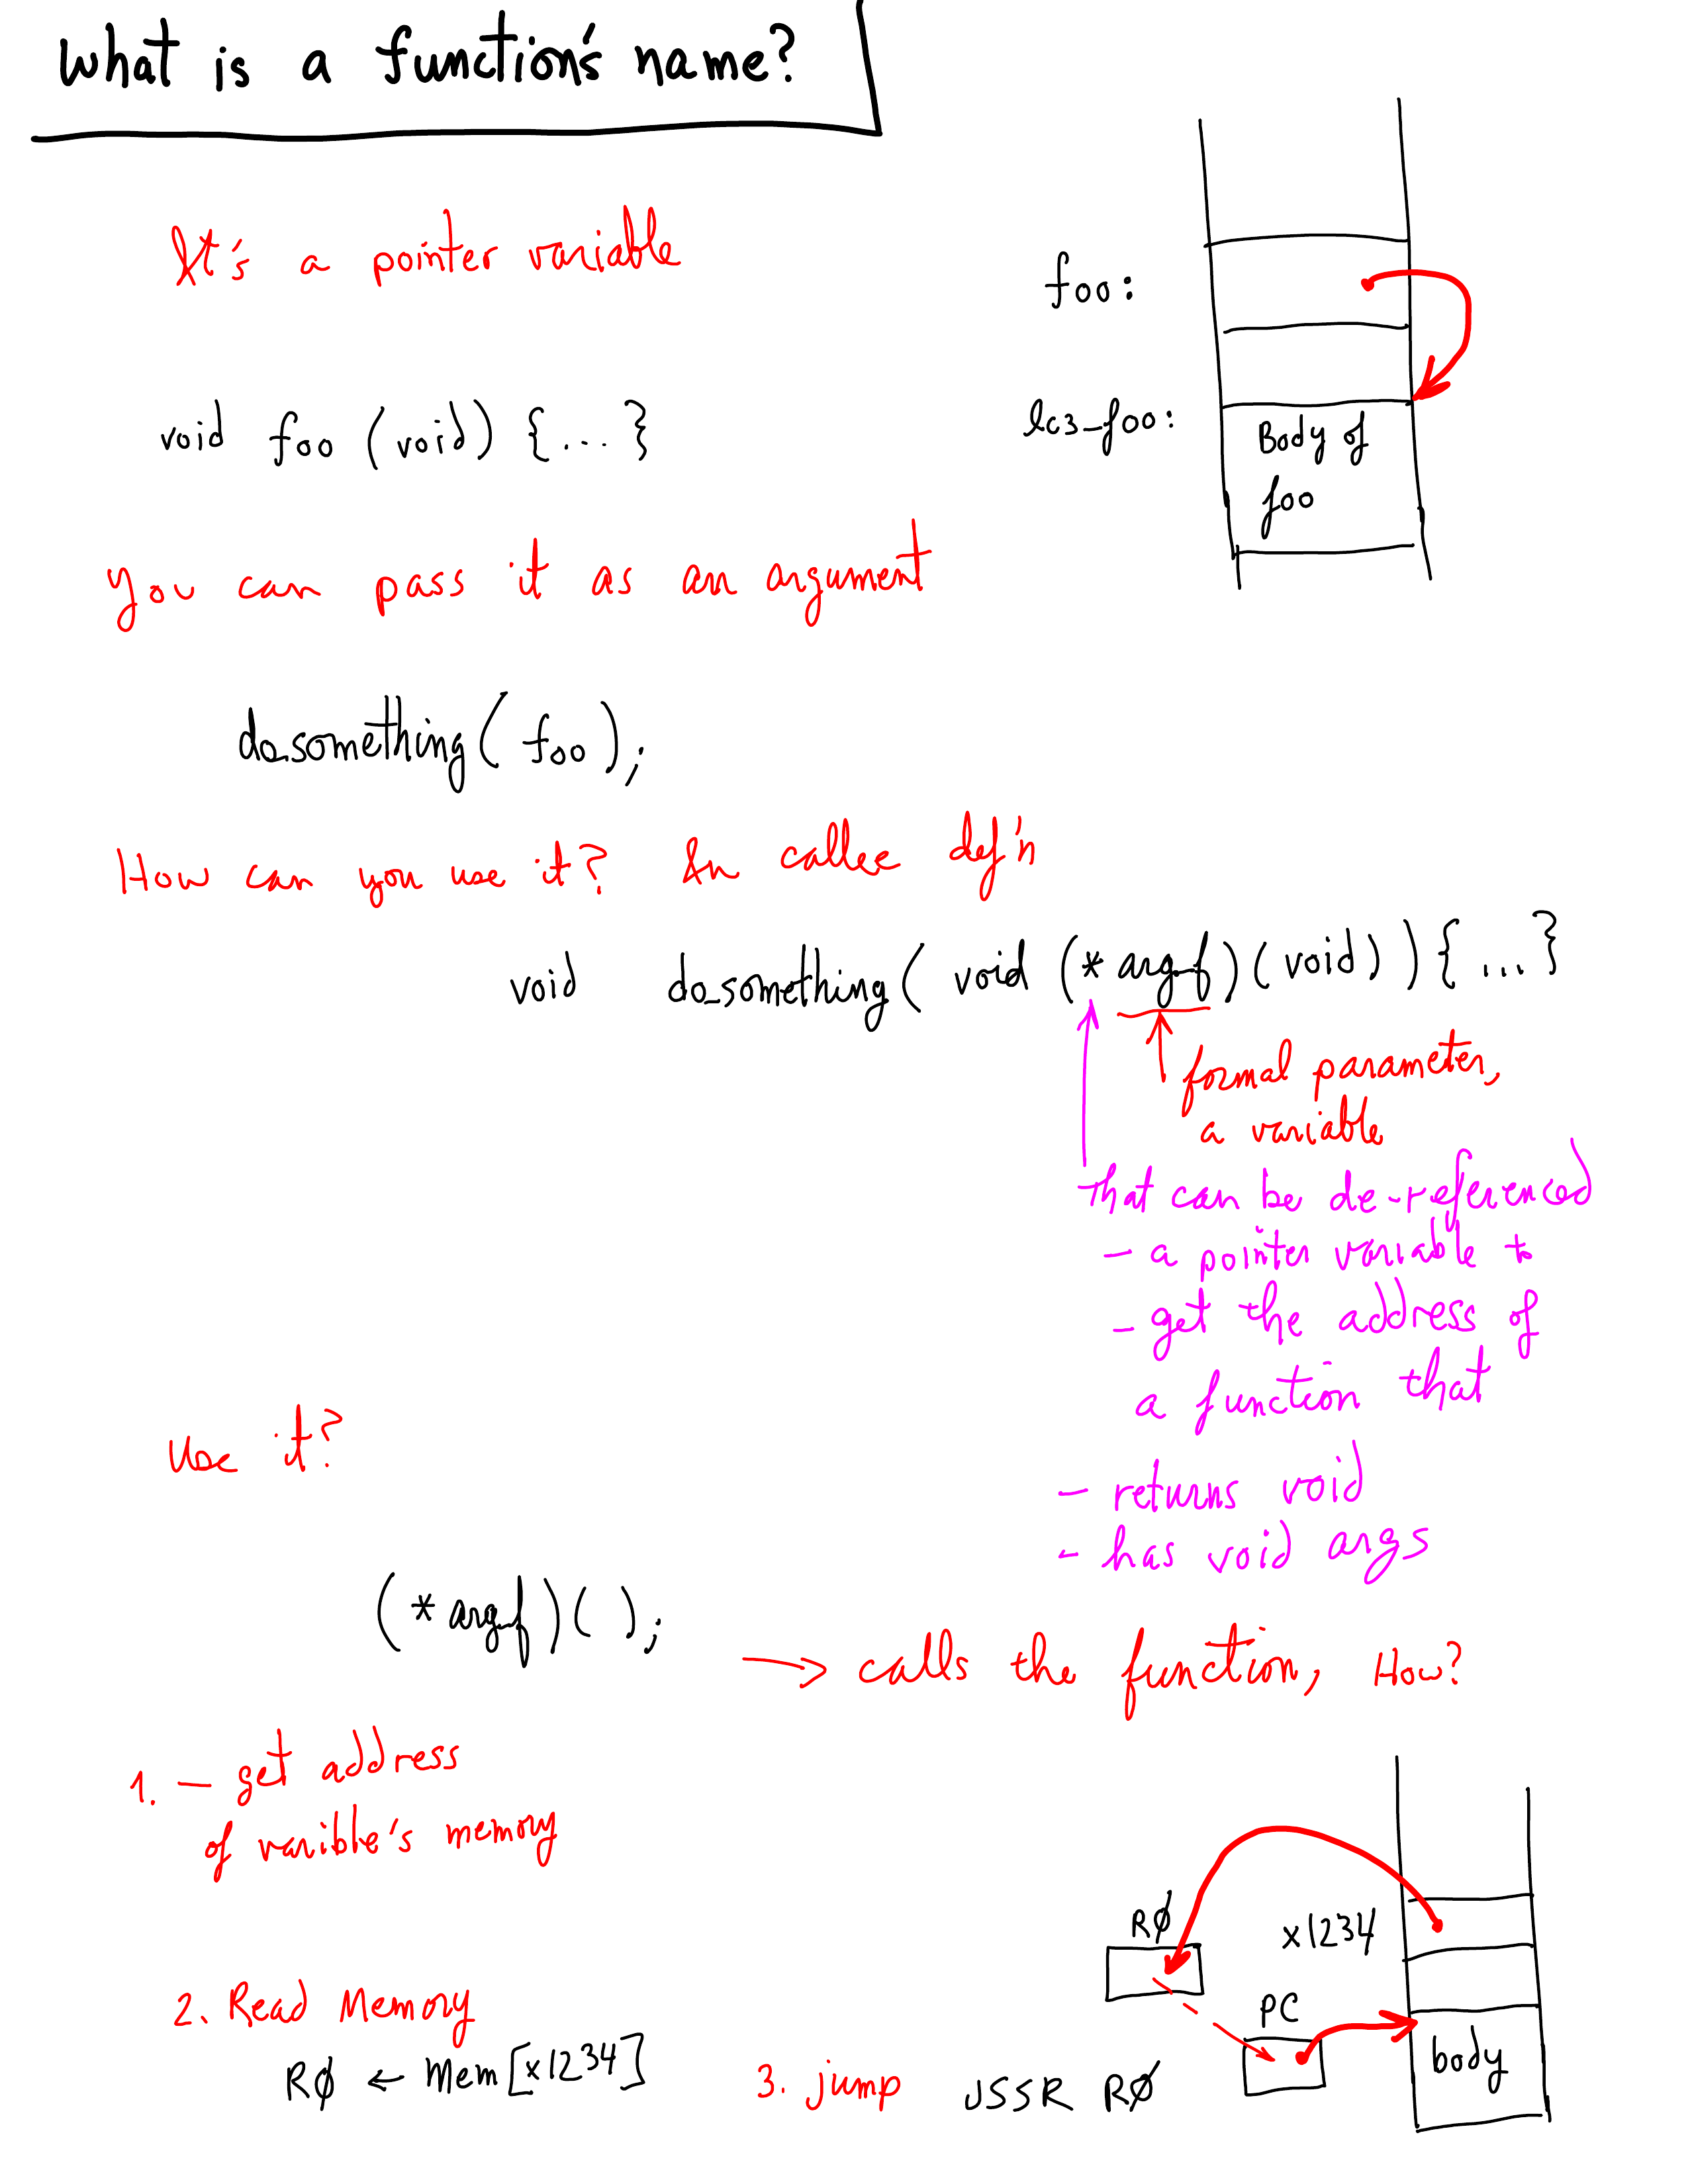 What is a function's name?
It's a pointer variable
foo:
void foo (void) {...}
lc3_foo:
Body of
foo
you can pass it as an argument
do_something( foo );
How can you use it? In callee def'n
void do_something( void (* arg_f)(void) ) {...}
formal parameter,
a variable
that can be de-referenced
- a pointer variable to
- get the address of
a function that
- returns void
- has void args
use it?
(* arg_f)( );
→ calls the function, How?
1. - get address
of varible's memory
RØ
x1234
PC
body
2. Read Memory
RØ ← Mem[x1234]
3. jump JSSR RØ